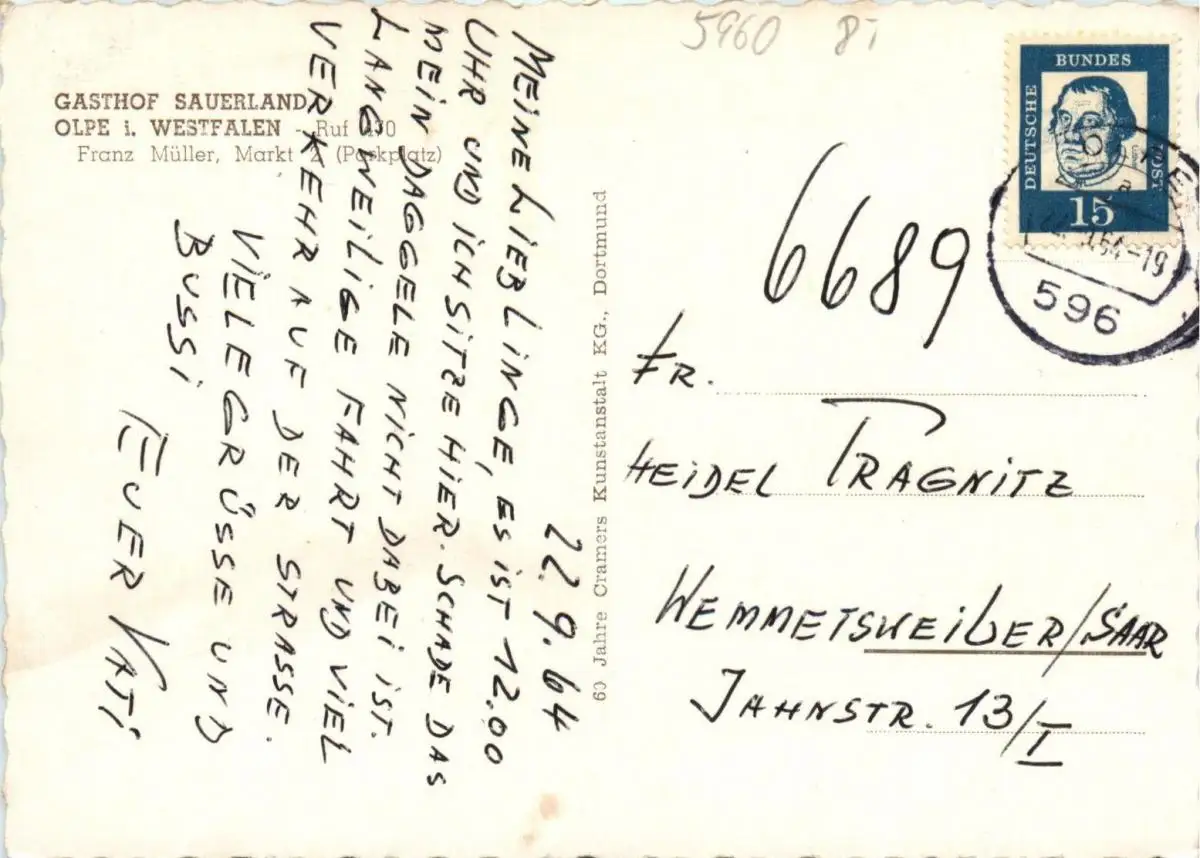 5960 87
GASTHOF SAUERLAND
OLPE i. WESTFALEN - Ruf 470
Franz Müller, Markt 2 (Parkplatz)
22.9.64
MEINE LIEBLINGE, ES IST 12.00
UHR UND ICH SITZE HIER. SCHADE DAS
MEIN DAGGELE NICHT DABEI IST.
LANGWEILIGE FAHRT UND VIEL
VERKEHR AUF DER STRASSE.
VIELE GRÜSSE UND
BUSSI
EUER VATI
60 Jahre Cramers Kunstanstalt KG., Dortmund
DEUTSCHE
BUNDES
POST
15
64-19
596
6689
FR.
HEIDEL TRAGNITZ
WEMMETSWEILER/SAAR
JAHNSTR. 13/I